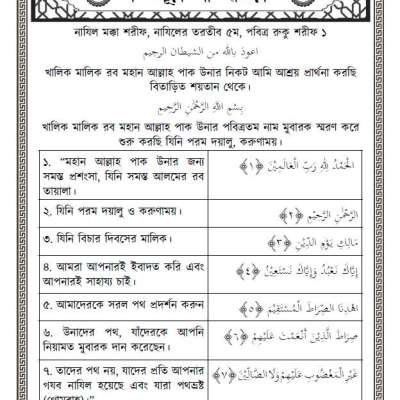 নাযিল মক্কা শরীফ, নাযিলের তরতীব ৫ম, পবিত্র রুকু শরীফ ১
اعوذ بالله من الشيطان الرجيم
খালিক মালিক রব মহান আল্লাহ পাক উনার নিকট আমি আশ্রয় প্রার্থনা করছি
বিতাড়িত শয়তান থেকে।
بِسْمِ اللهِ الرَّحْمٰنِ الرَّحِيْمِ
খালিক মালিক রব মহান আল্লাহ পাক উনার পবিত্রতম নাম মুবারক স্মরণ করে
শুরু করছি যিনি পরম দয়ালু, করুণাময়।
১. “মহান আল্লাহ পাক উনার জন্য
সমস্ত প্রশংসা, যিনি সমস্ত আলমের রব
তায়ালা।
الْحَمْدُ لِلّٰهِ رَبِّ الْعَالَمِيْنَ ﴿١﴾
২. যিনি পরম দয়ালু ও করুণাময়।
الرَّحْمٰنِ الرَّحِيْمِ ﴿٢﴾
৩. যিনি বিচার দিবসের মালিক।
مَالِكِ يَوْمِ الدِّيْنِ ﴿٣﴾
৪. আমরা আপনারই ইবাদত করি এবং
আপনারই সাহায্য চাই।
إِيَّاكَ نَعْبُدُ وَإِيَّاكَ نَسْتَعِيْنُ ﴿٤﴾
৫. আমাদেরকে সরল পথ প্রদর্শন করুন
اهْدِنَا الصِّرَاطَ الْمُسْتَقِيْمَ ﴿٥﴾
৬. উনাদের পথ, যাঁদেরকে আপনি
নিয়ামত মুবারক দান করেছেন।
صِرَاطَ الَّذِيْنَ أَنْعَمْتَ عَلَيْهِمْ ﴿٦﴾
৭. তাদের পথ নয়, যাদের প্রতি আপনার
গযব নাযিল হয়েছে এবং যারা পথভ্রষ্ট
(গোমরাহ)।”
غَيْرِ الْمَغْضُوْبِ عَلَيْهِمْ وَلَا الضَّالِّيْنَ ﴿٧﴾